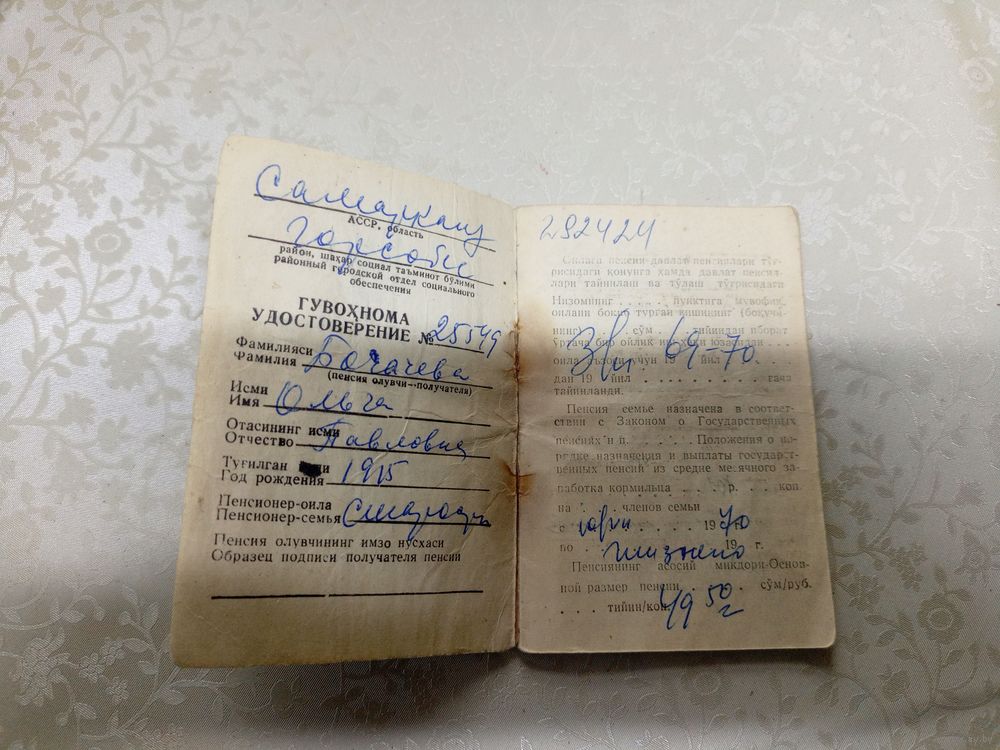 Самарканд
АССР, область
горсобес
район, шаҳар социал таъминот бўлими
районный городской отдел социального
обеспечения
ГУВОҲНОМА
УДОСТОВЕРЕНИЕ № 25549
Фамилияси
Фамилия Богачева
(пенсия олувчи—получателя)
Исми
Имя Ольга
Отасининг исми
Отчество Павловна
Туғилган
Год рождения 1915
Пенсионер-оила
Пенсионер-семья
Пенсия олувчининг имзо нусхаси
Образец подписи получателя пенсии
292424
Оилага пенсия давлат пенсиялари тўғ-
рисидаги қонунга ҳамда давлат пенсия-
лари тайинлаш ва тўлаш тўғрисидаги
Низомнинг . . . . . пунктига мувофиқ
оилани боқиб турган кишининг (боқувчи-
нинг) . . . сўм . . тийиндан иборат
ўртача бир ойлик иш ҳақи юзасидан . . .
оила аъзоси учун 19 . . йил
69-70
дан 19 йил . . . . . . . . гача
тайинланди.
Пенсия семье назначена в соответ-
ствии с Законом о Государственных
пенсиях и п. . . . . . Положения о по-
рядке назначения и выплаты государст-
венных пенсий из среднемесячного за-
работка кормильца . . . . р. . . коп.
на . . . членов семьи
с . . . . 1970 г.
по пожизнено 19 г.
Пенсиянинг асосий миқдори-Основ-
ной размер пенсии . . . . сўм/руб.
. . . . тийин/коп. 49 50